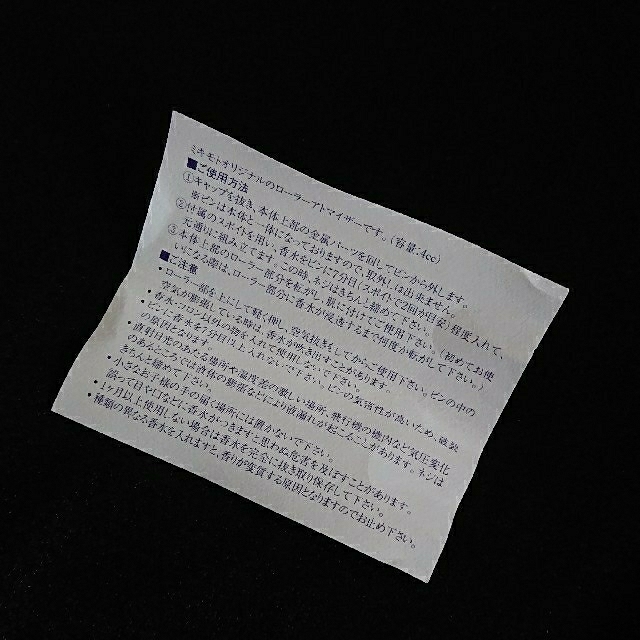 ミキモトオリジナルのローラーアトマイザーです。(容量:4cc)
■ご使用方法
①キャップを抜き、本体上部の金属パーツを回してビンから外します。
(香ビンは本体と一体になっておりますので、取外しは出来ません。)
②付属のスポイトを用い、香水をビンに7分目(スポイトで2回が目安)程度入れて、
元通りに組み立てます。この時、ネジはきちんと締めて下さい。
③本体上部のローラー部分を転がし、肌に付けてご使用下さい。(初めてお使
いになる際は、ローラー部分に香水が浸透するまで何度か転がして下さい。)
■ご注意
•ローラー部を上にして軽く押し、空気抜きをしてからご使用下さい。ビンの中の
空気が膨張している時は、香水が吹き出すことがあります。
•香水・コロン以外の物を入れて使用しないで下さい。
•ビンに香水を7分目以上入れないで下さい。ビンの気密性が高いため、破裂
の原因となります。
•直射日光のあたる場所や温度差の激しい場所、飛行機の機内など気圧変化
のあるところでは液体の膨張などにより液漏れが起こることがあります。ネジは
きちんと締めて下さい。
•小さなお子様の手の届く場所には置かないで下さい。
•誤って目や口などに香水がつきますと思わぬ危害を及ぼすことがあります。
•1ヶ月以上使用しない場合は香水を完全に抜き取り保存して下さい。
•種類の異なる香水を入れますと、香りが変質する原因となりますのでお止め下さい。